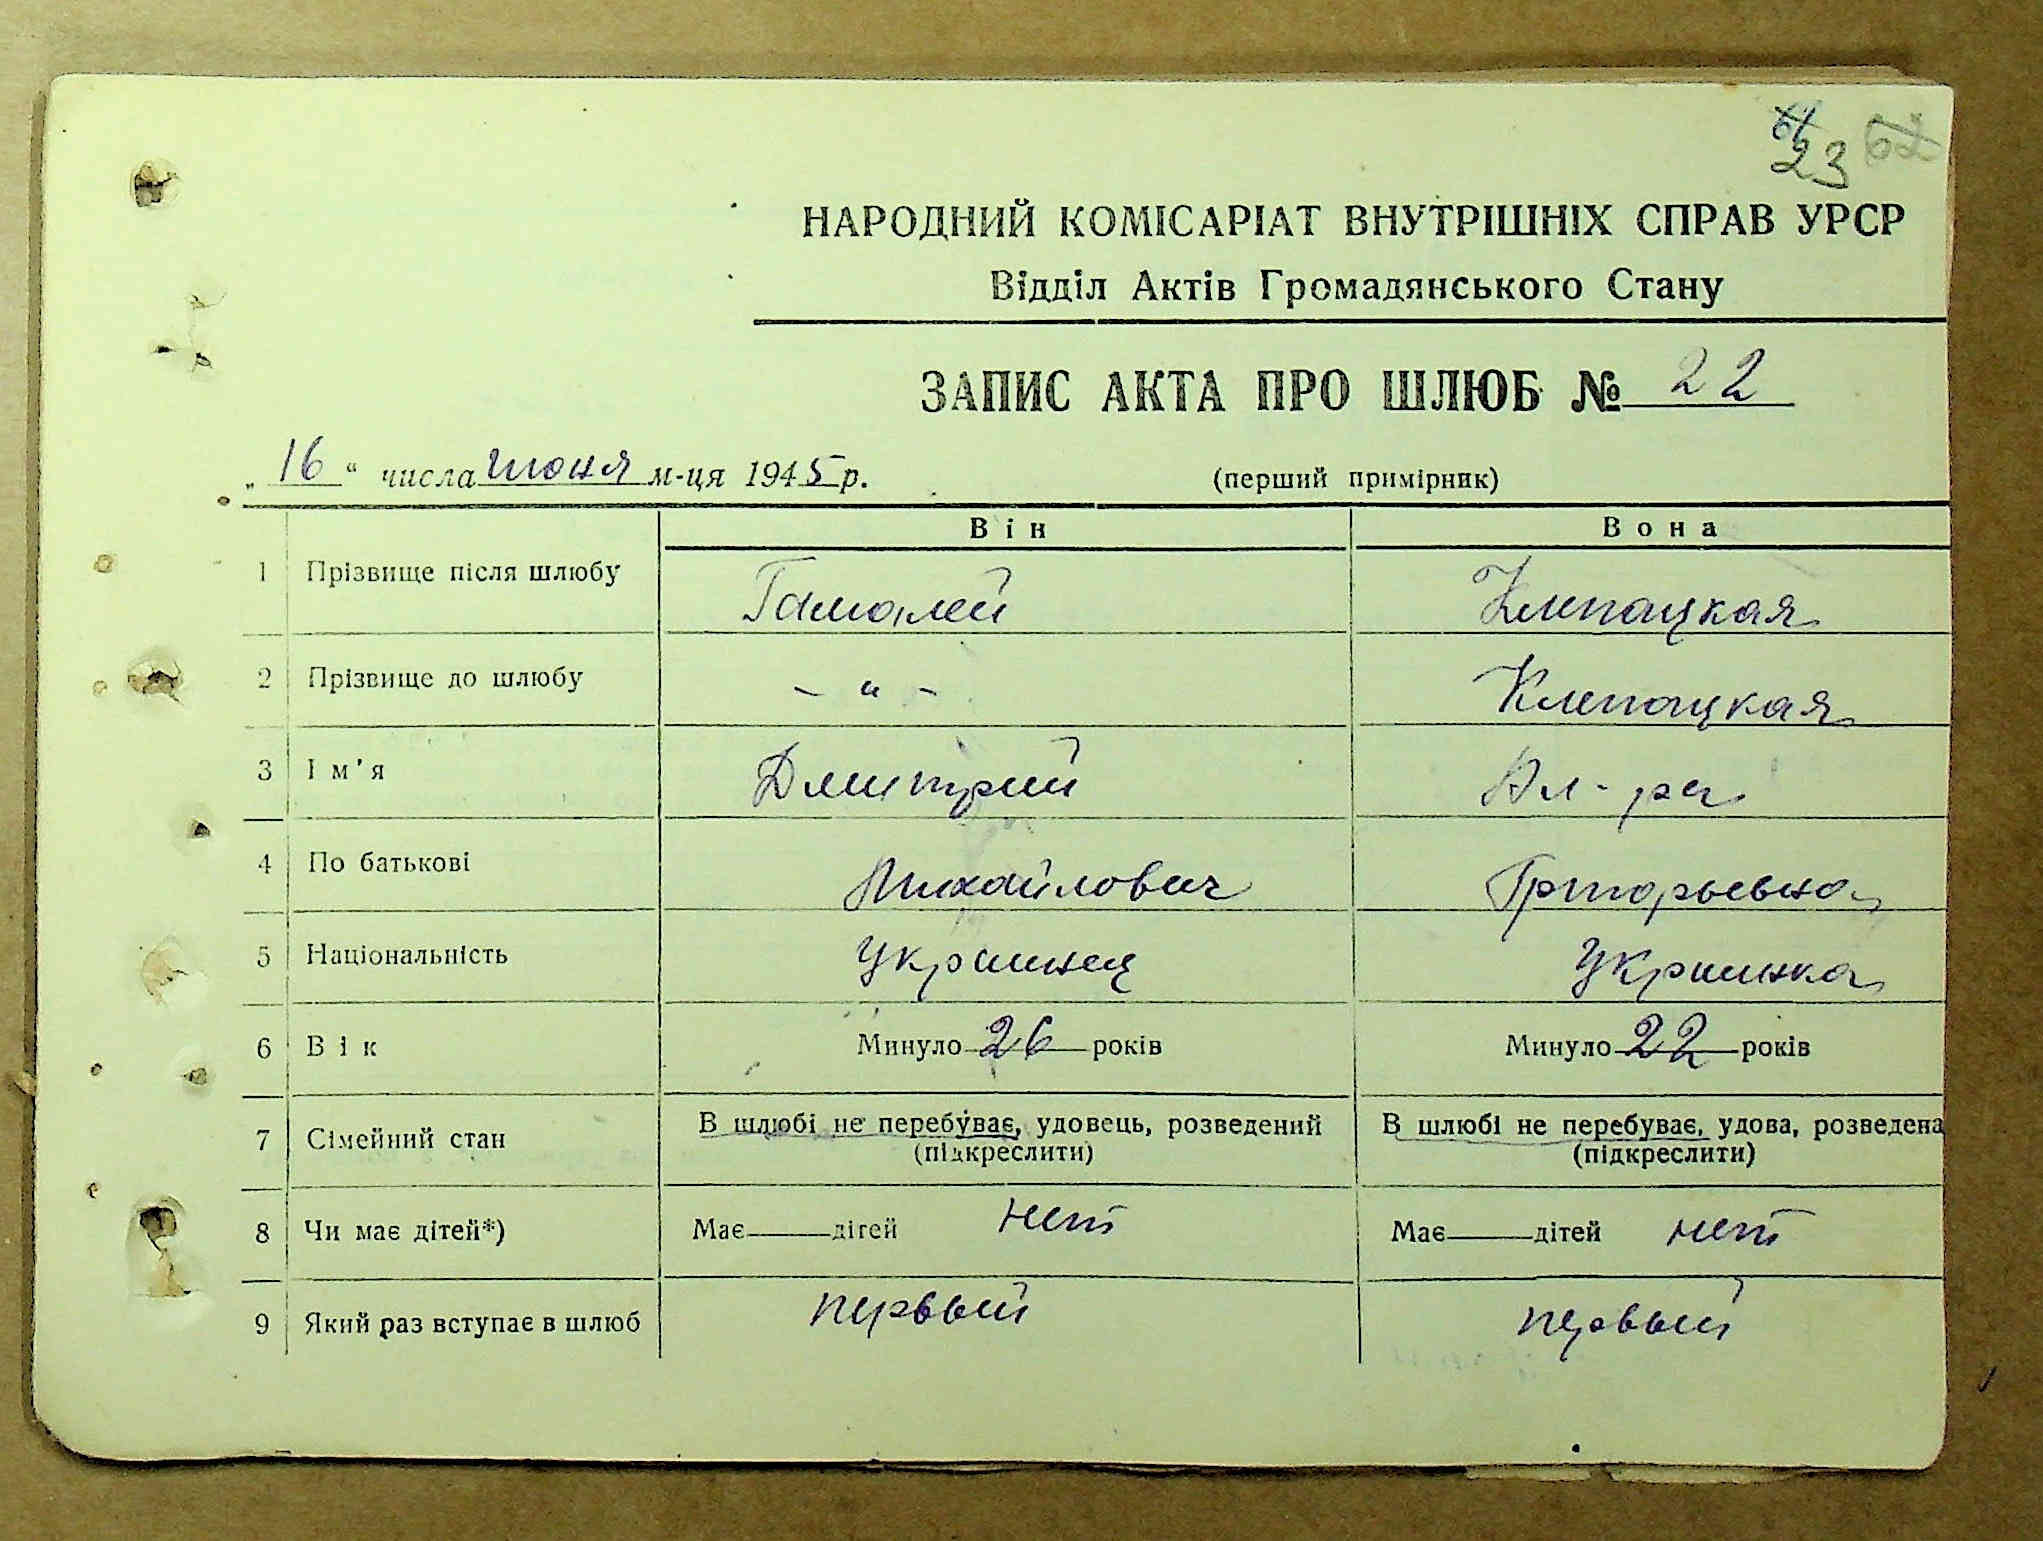 61 62
23
НАРОДНИЙ КОМІСАРІАТ ВНУТРІШНІХ СПРАВ УРСР
Відділ Актів Громадянського Стану
ЗАПИС АКТА ПРО ШЛЮБ № 22
„16“ числа июня м-ця 1945 р. (перший примірник)
Він Вона
1 Прізвище після шлюбу Гамалей Клепацкая
2 Прізвище до шлюбу – „ – Клепацкая
3 Ім'я Дмитрий Ал-ра
4 По батькові Михайлович Григорьевна
5 Національність Украинец Украинка
6 Вік Минуло 26 років Минуло 22 років
7 Сімейний стан В шлюбі не перебуває, удовець, розведений В шлюбі не перебуває, удова, розведена
(підкреслити) (підкреслити)
8 Чи має дітей*) Має дітей нет Має дітей нет
9 Який раз вступає в шлюб первый первый